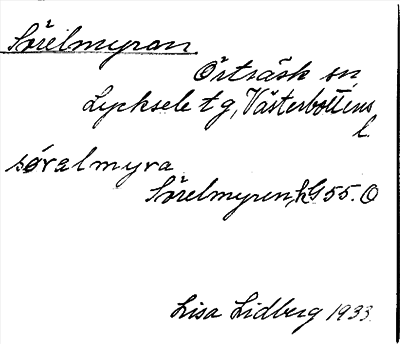 Sörelmyran
Örträsk sn,
Lycksele tg, Västerbottens
l.
sörælmyra
Sörelmyren, kG55. O
Lisa Lidberg 1933.